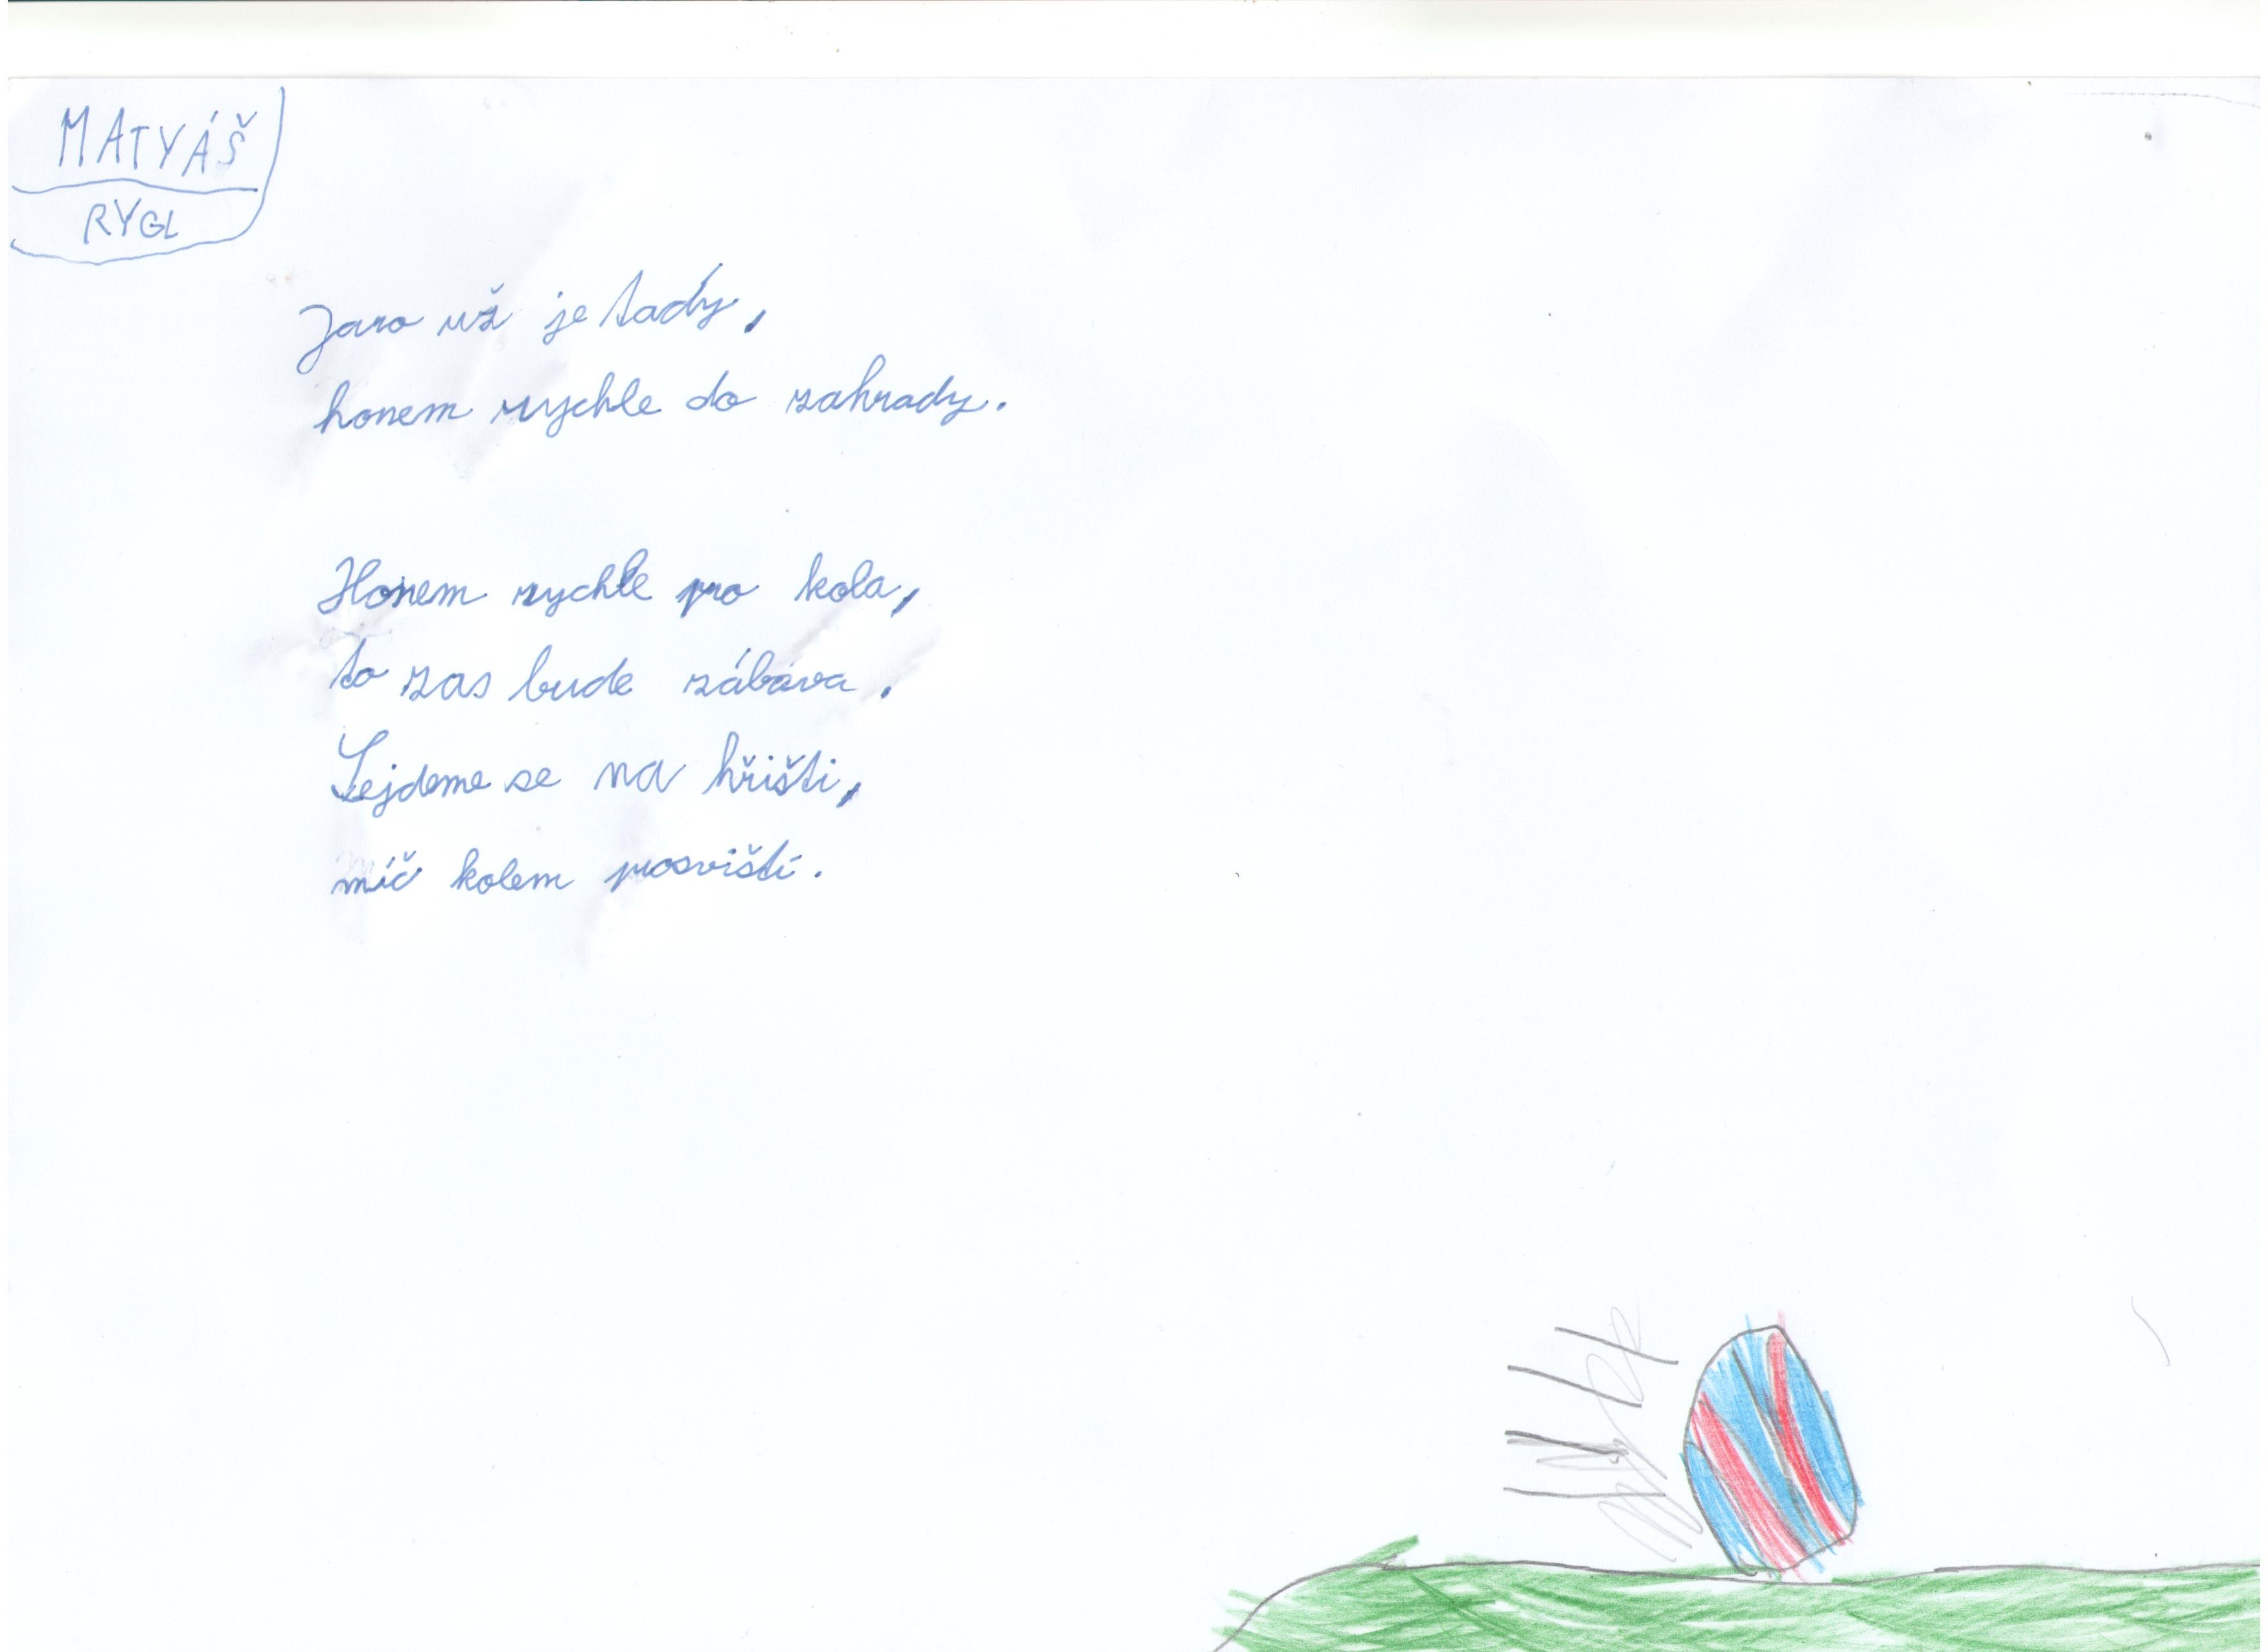 MATYÁŠ
RYGL
Jaro už je tady,
honem rychle do zahrady.
Honem rychle pro kola,
to zas bude zábava.
Sejdeme se na hřišti,
míč kolem prosviští.